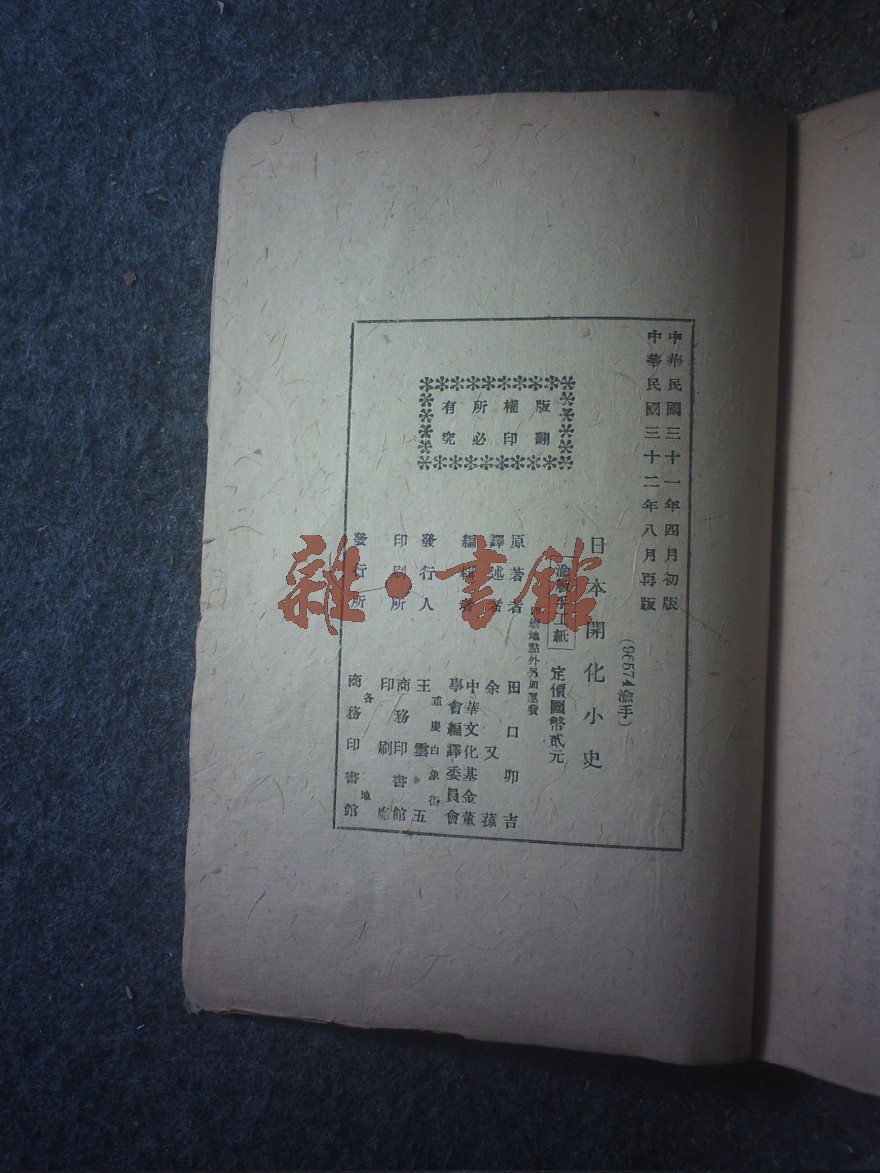 中華民國三十一年四月初版
中華民國三十二年八月再版
(96574渝手)
日本開化小史
渝版手工紙
定價國幣貳元
印刷地點外另加運費
版權所有
翻印必究
原著者 田口卯吉
譯述者 余又蓀
編輯者 中華文化基金董
學會編譯委員會
發行人 王雲五
重慶白象街
印刷所 商務印書館
印刷處
發行所 商務印書館
各地
雜·書館